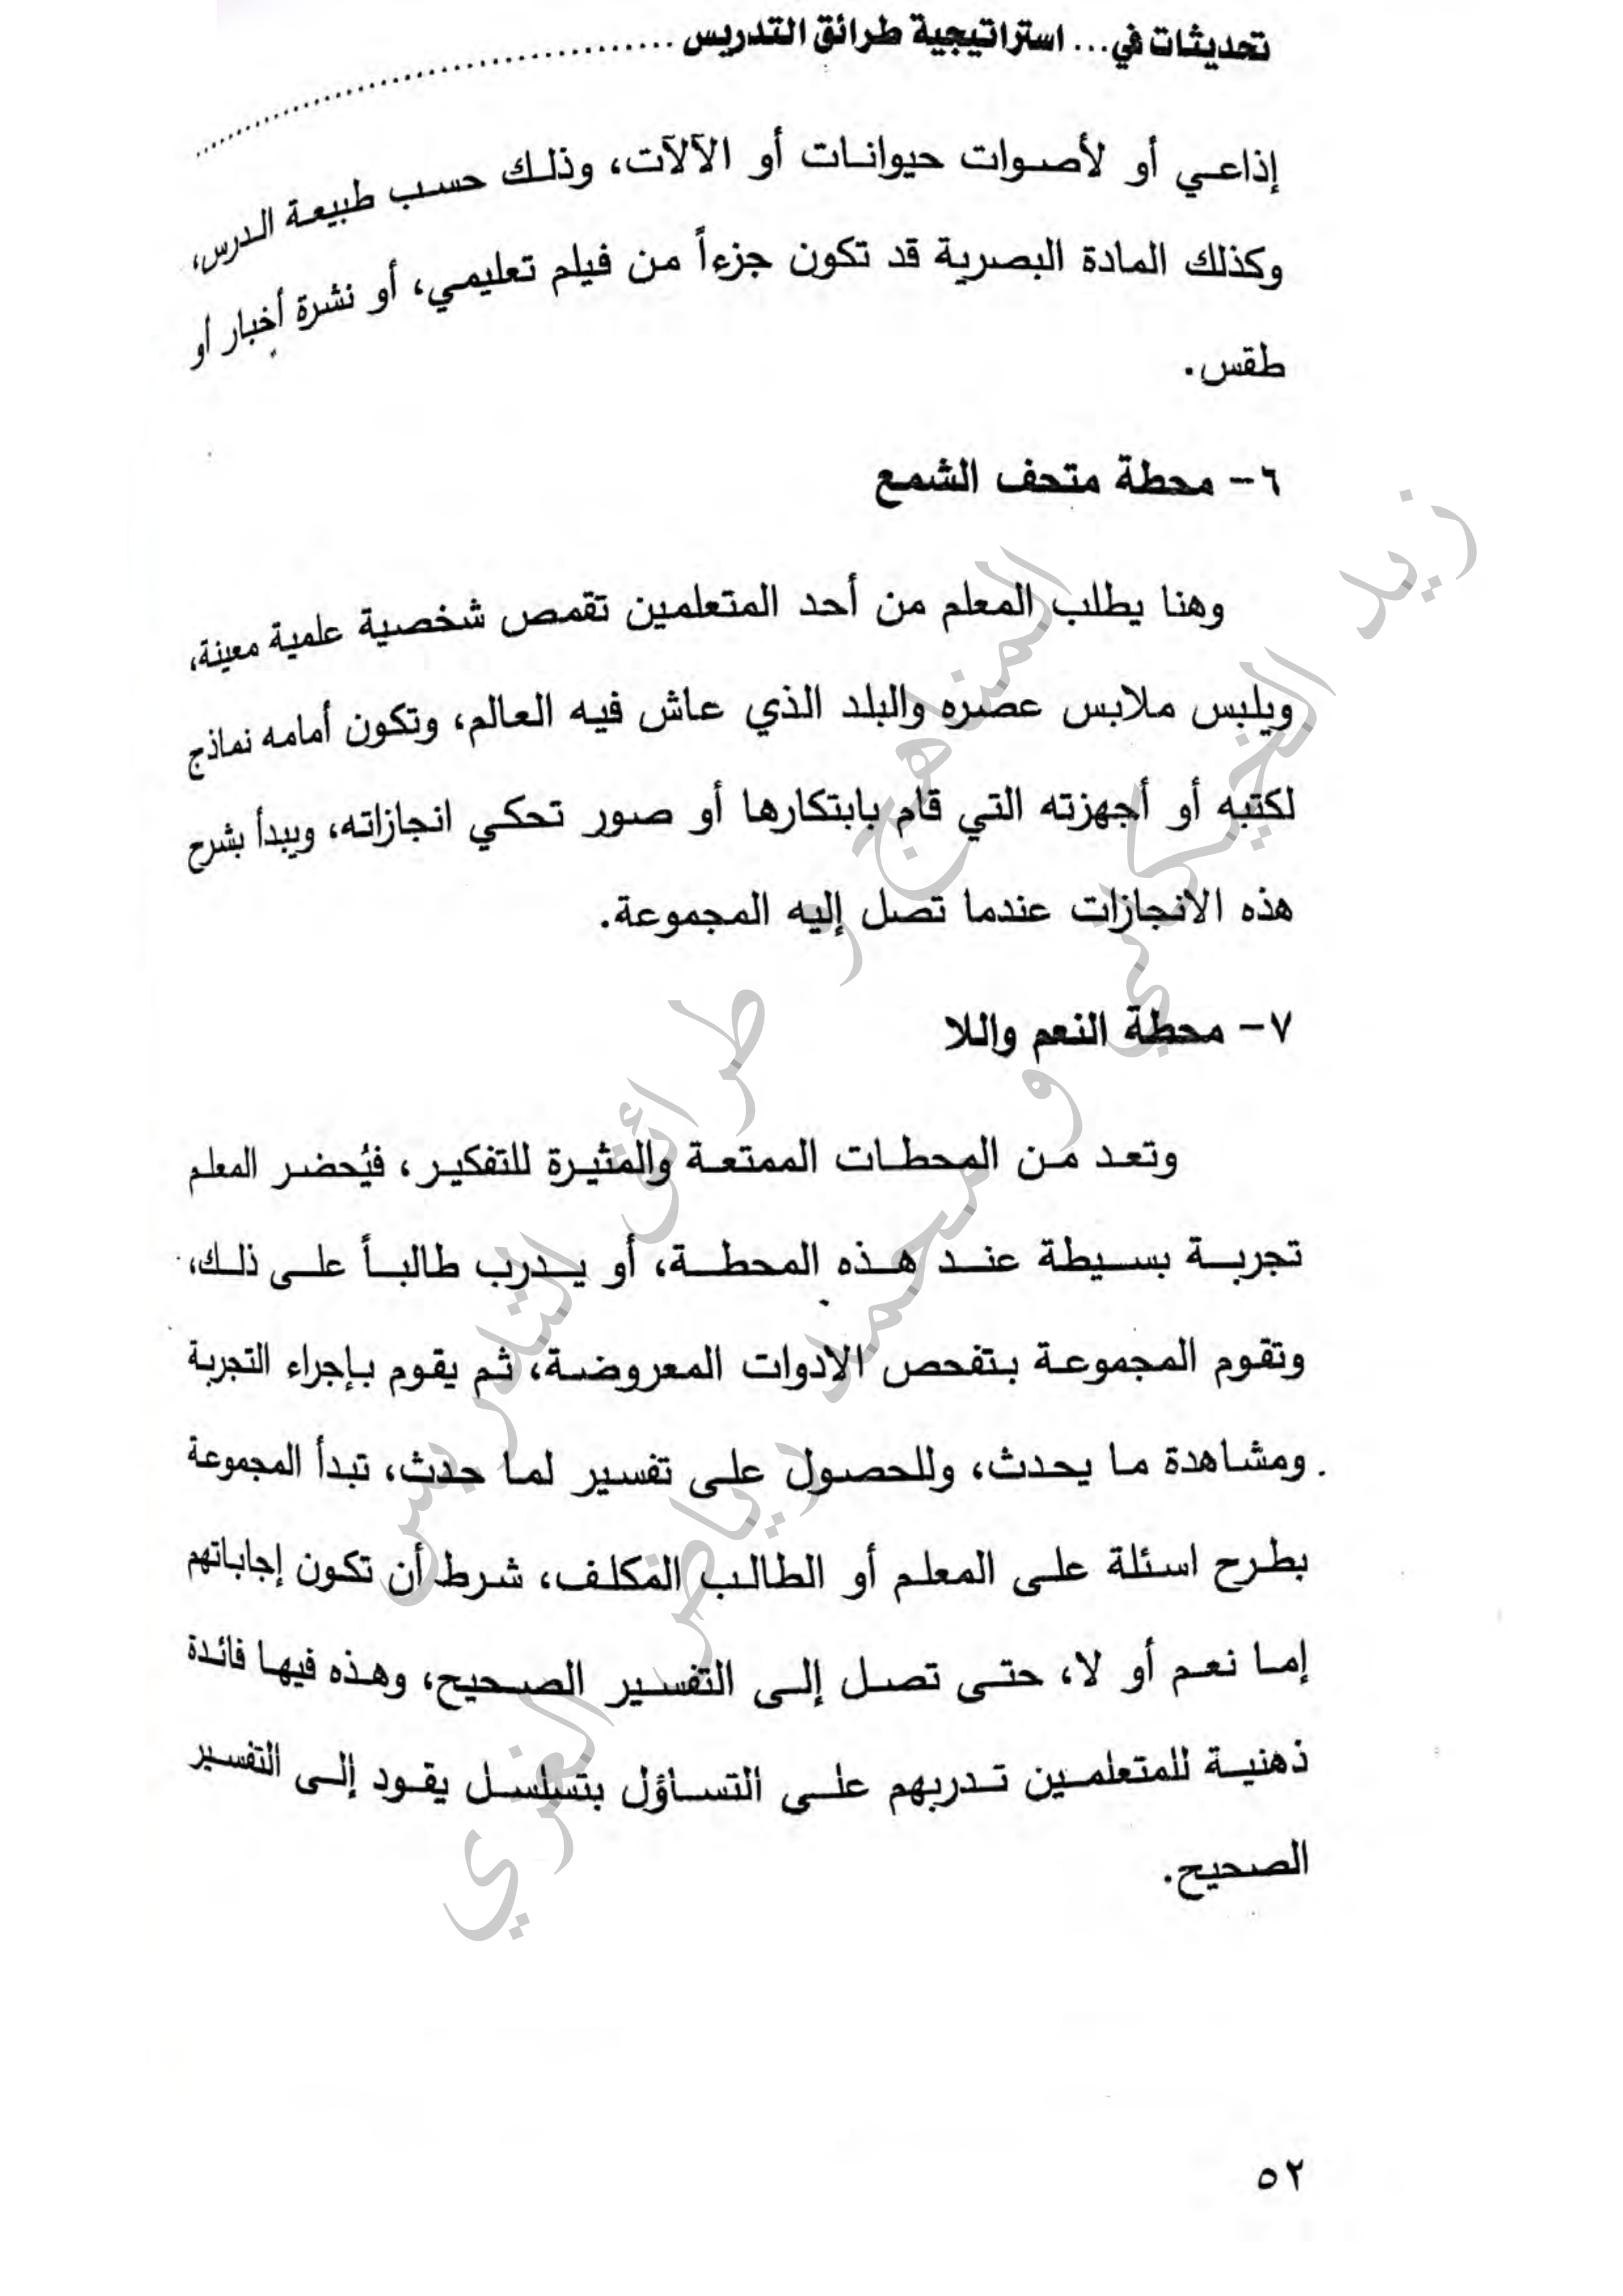 تحديثات في... استراتيجية طرائق التدريس
إذاعي أو لأصوات حيوانات أو الآلات، وذلك حسب طبيعة الدرس،
وكذلك المادة البصرية قد تكون جزءاً من فيلم تعليمي، أو نشرة أخبار أو
طقس.
٦- محطة متحف الشمع
وهنا يطلب المعلم من أحد المتعلمين تقمص شخصية علمية معينة،
ويلبس ملابس عصره والبلد الذي عاش فيه العالم، وتكون أمامه نماذج
لكتبه أو أجهزته التي قام بابتكارها أو صور تحكي انجازاته، ويبدأ بشرح
هذه الانجازات عندما تصل إليه المجموعة.
٧- محطة النعم واللا
وتعد من المحطات الممتعة والمثيرة للتفكير، فيُحضر المعلم
تجربة بسيطة عند هذه المحطة، أو يدرب طالباً على ذلك،
وتقوم المجموعة بتفحص الادوات المعروضة، ثم يقوم بإجراء التجربة
ومشاهدة ما يحدث، وللحصول على تفسير لما حدث، تبدأ المجموعة
بطرح اسئلة على المعلم أو الطالب المكلف، شرط أن تكون إجاباتهم
إما نعم أو لا، حتى تصل إلى التفسير الصحيح، وهذه فيها فائدة
ذهنية للمتعلمين تدربهم على التساؤل بتسلسل يقود إلى التفسير
الصحيح.
٥٢
المناهج و طرائق التدريس
زيد الخيكاني و محمد رياض الغزي